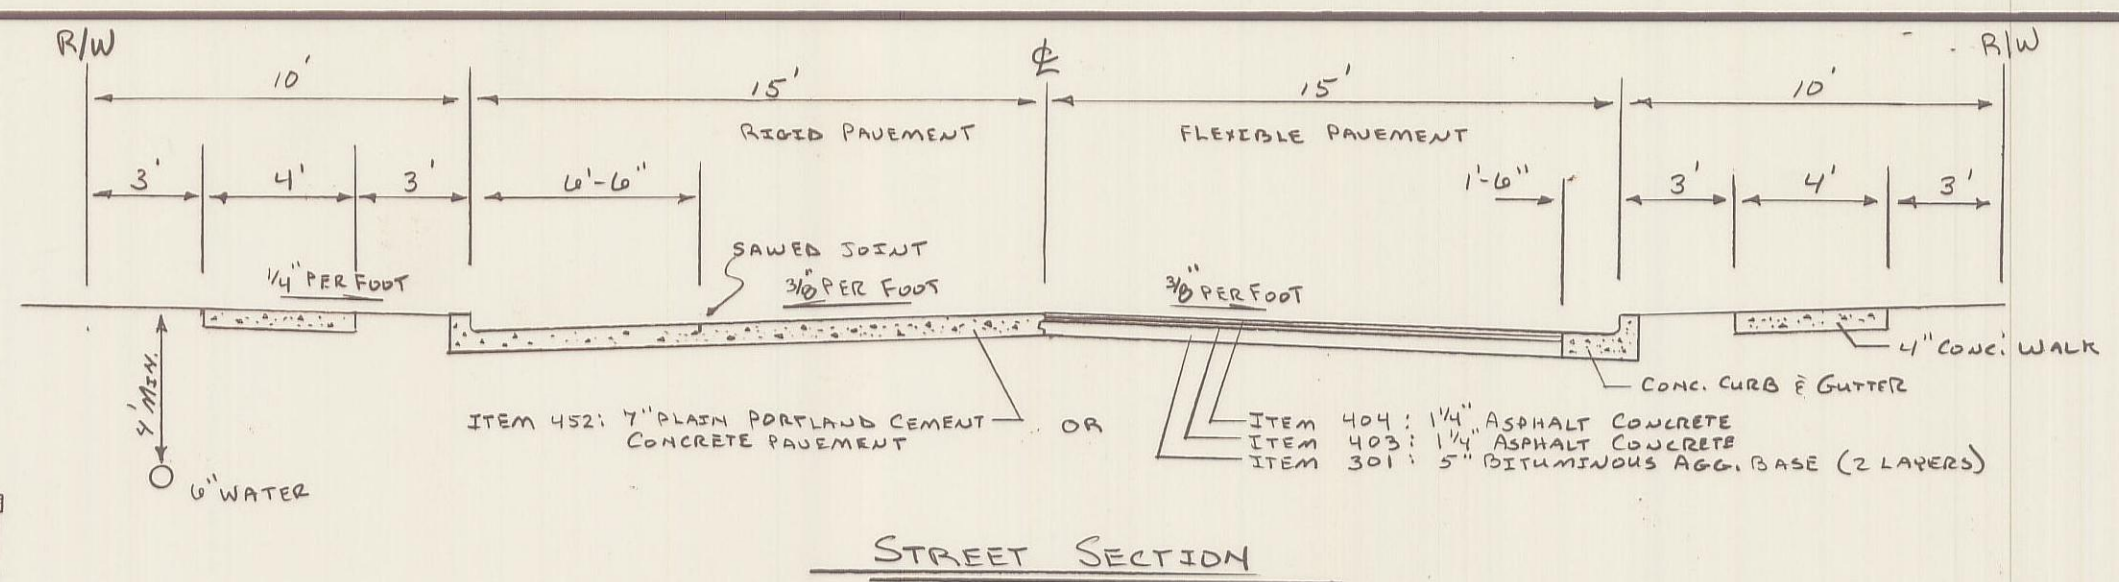 R/W
℄
R/W
10'
15'
15'
10'
RIGID PAVEMENT
FLEXIBLE PAVEMENT
3'
4'
3'
6'-6"
1'-6"
3'
4'
3'
SAWED JOINT
1/4" PER FOOT
3/8" PER FOOT
3/8" PER FOOT
4' MIN.
4" CONC. WALK
CONC. CURB & GUTTER
ITEM 452: 7" PLAIN PORTLAND CEMENT
CONCRETE PAVEMENT
OR
ITEM 404: 1 1/4" ASPHALT CONCRETE
ITEM 403: 1 1/4" ASPHALT CONCRETE
ITEM 301: 5" BITUMINOUS AGG. BASE (2 LAYERS)
6" WATER
STREET SECTION